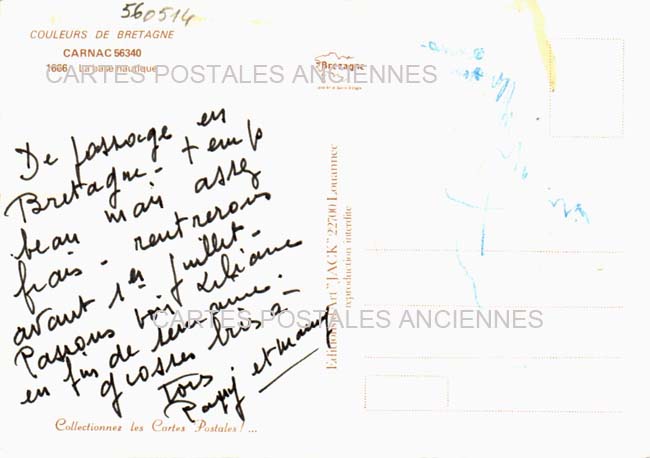 560514
COULEURS DE BRETAGNE
CARNAC 56340
1666 - La base nautique
Bretagne
CARTES POSTALES ANCIENNES
De passage en
Bretagne - temps
beau mais assez
frais - rentrerons
avant 1er juillet -
Passons voir Liliane
en fin de semaine.
grosses bises à
Tous
Papy et Mamy
CARTES POSTALES ANCIENNES
Editions d'Art "JACK" 22700 Louannec
reproduction interdite
Collectionnez les Cartes Postales ! ...